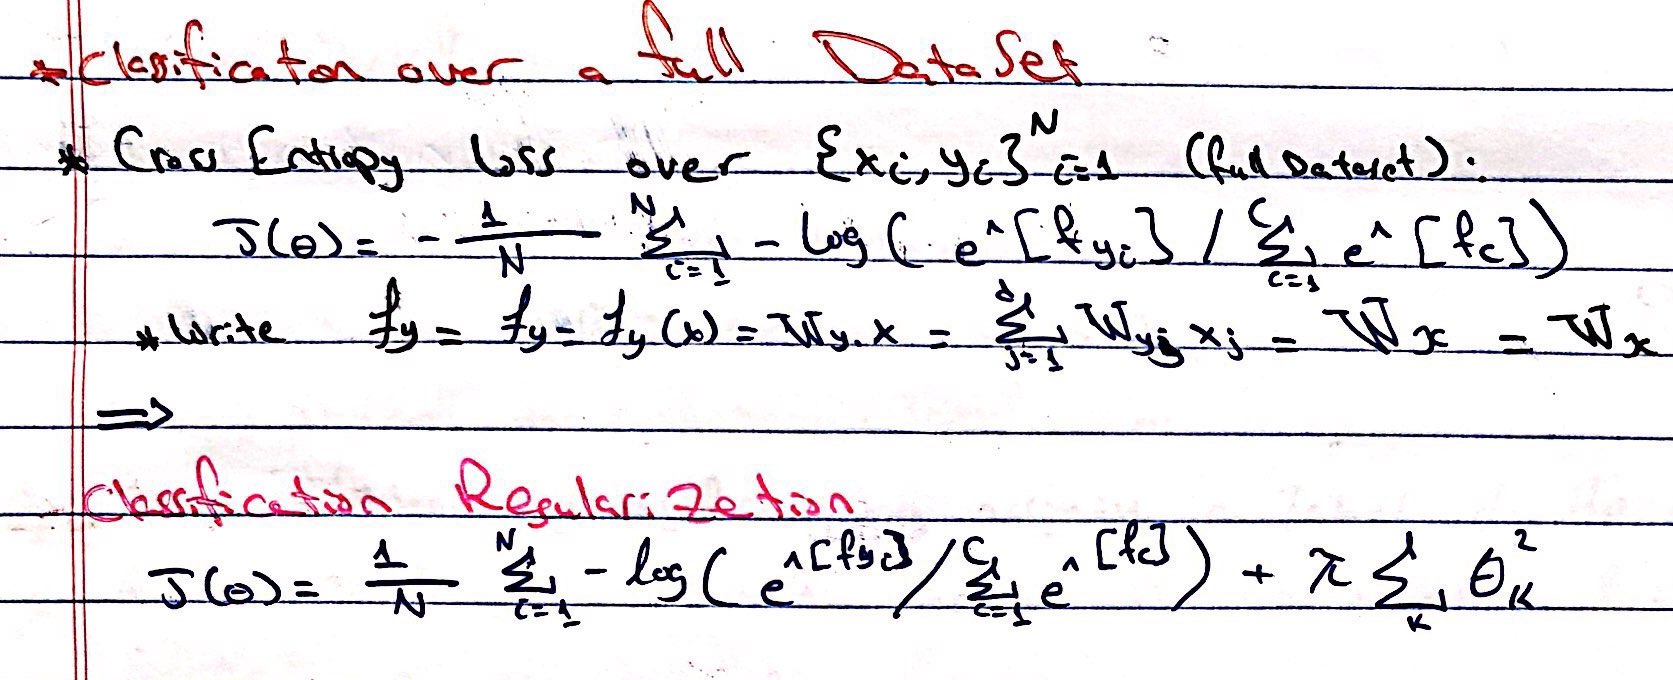 * Classificaton over a full DataSet
* Cross Entropy loss over {xi, yi}^N i=1 (full Dataset):
J(θ) = - 1/N Σ^N i=1 - log( e^[fyi] / Σ^C c=1 e^[fc])
* Write fy = fy = fy(x) = Wy.x = Σ^d j=1 Wyj xj = Wx = Wx
⇒
Classification Regularization
J(θ) = 1/N Σ^N i=1 - log( e^[fyi] / Σ^C c=1 e^[fc]) + λ Σ k θk²